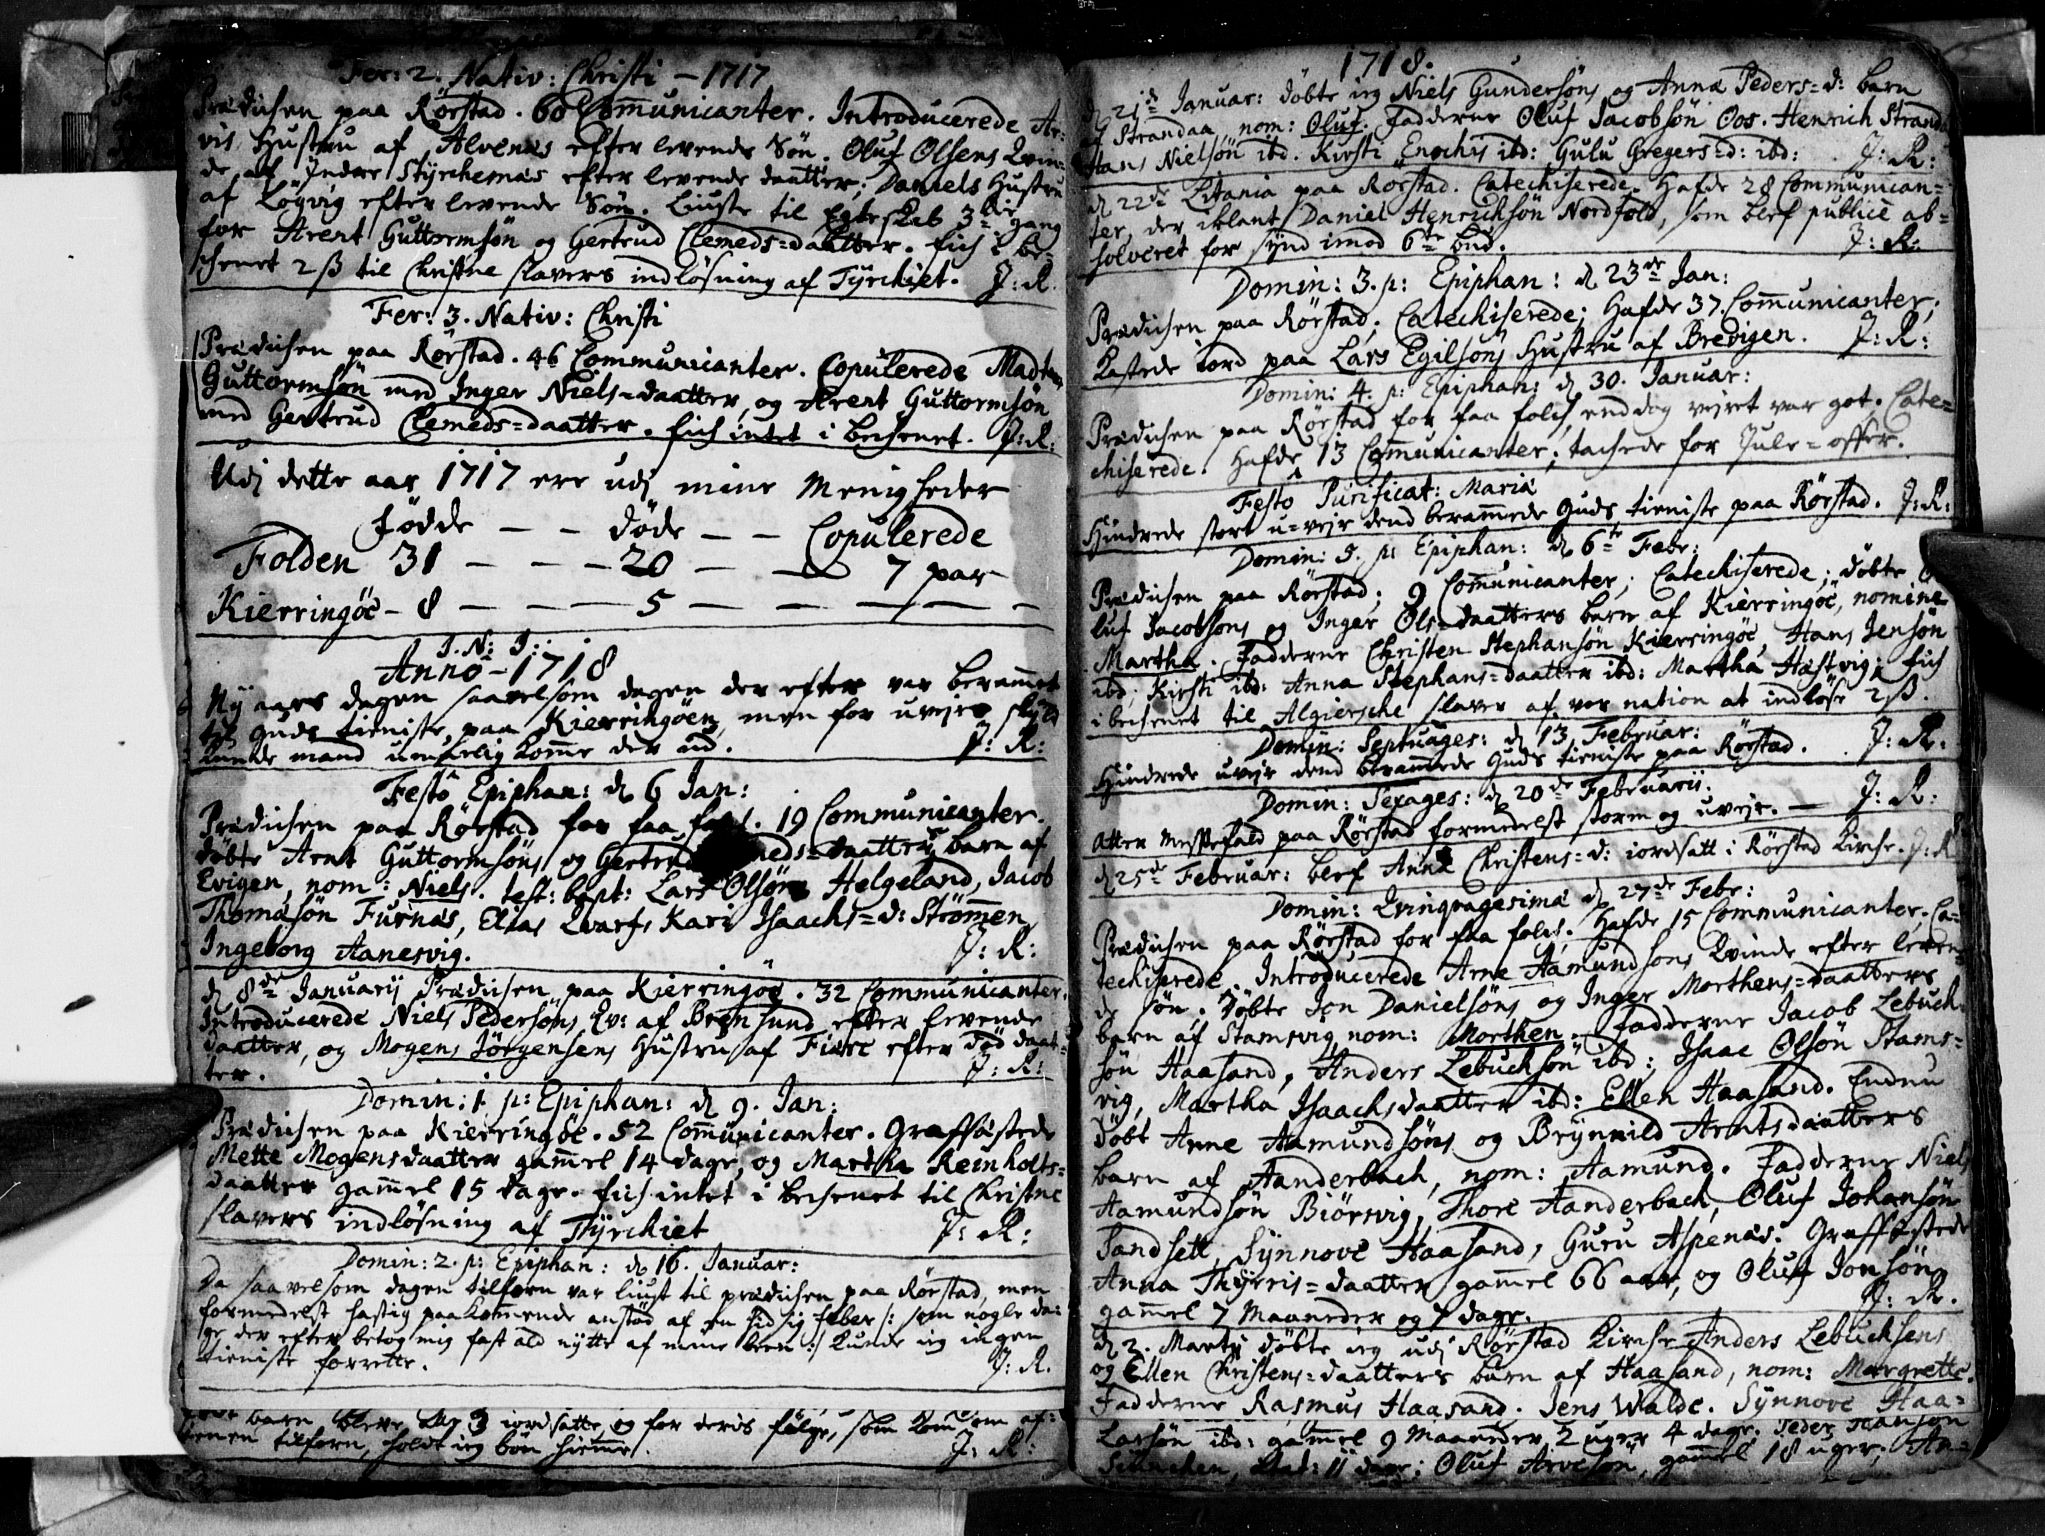 Fer: 2. Nativ: Christi - 1717
Prædichen paa Rörstad. 60 Communicanter. Introducerede Ar-
vis Hustru af Alvenæs efter levende Sön. Oluf Olsens Qvin-
de af Indre Styrchesnæs efter levende daatter; Daniels Hustru
af Lögvig efter levende Sön. Liuste til Egteskab 3die gang
for Arent Guttormsön og Gertrud Clemeds=daatter. fich i be-
chenet 2 ß til Christne slavers indlösning af Tyrchiet. J: R.
Fer: 3. Nativ: Christi
Prædichen paa Rörstad. 46 Communicanter. Copulerede
Guttormsön med Inger Niels=daatter, og Arent Guttormsön
med Gertrud Clemeds=daatter. fich intet i bechenet. J: R:
Udj dette aar 1717 ere udj mine Menigheder
Födde - - döde - - Copulerede
Folden 31 - - - 20 - - 7 par
Kierringöe - 8 - - - 5 - - - - -
J. N: J:
Anno - 1718
Ny aars dagen saavelsom dagen der efter var berammet
til Guds tieniste paa Kierringöen, men for uvejrs skyld
kunde mand umuelig komme der ud. J: R:
Festo Epiphan: d 6 Jan:
Prædichen paa Rörstad for faa folch. 19 Communicanter.
döbte Arnt Guttormsöns og Gertrud daatters barn af
Evigen, nom: Niels. test: bapt: Lars Olsön Helgeland, Jacob
Thomasön Furnæs, Elias Qvarf, Kari Isaachs=d: Strömmen
Ingeborg Aanesvig. J: R:
d 8de Januarij Prædichen paa Kierringöe. 32 Communicanter.
Introducerede Niels Pedersöns Qv: af Brensund efter levende
daatter, og Mogens Jörgensens Hustru af Fiære efter död daat-
ter. J: R:
Domin: 1. p: Epiphan: d 9. Jan:
Prædichen paa Kierringöe. 52 Communicanter. Graffæstede
Mette Mogensdaatter gammel 14 dage, og Martha Reinholts=
daatter gammel 15 dage. fich intet i bechenet til Christne
slavers indlösning af Tyrchiet J: R:
Domin: 2. p: Epiphan: d 16. Januar:
Da saavelsom dagen tilforn var liust til prædichen paa Rörstad, men
formedelst hastig paakommende anstöd af en hidsig feber /: som nogle da-
ge der efter betog mig fast ald nytte af mine been :/ kunde ieg ingen
tieniste forrette. J: R.
barn bleve iordsatte, og for deris fölge, som
tilforn, holdt ieg bön hiemme. J: R:
1718.
d 21de Januar: döbte ieg Niels Gundersöns og Anna Peders=d: barn
af Strandaa, nom: Oluf. Fadderne Oluf Jacobsön Oos. Henrich Strand
Hans Nielsön ibd. Kirsti Enochis ibd: Gulu Gregers=d: ibd: J: R:
d 22de Litania paa Rörstad. Catechiserede. Hafde 28 Communican=
ter, der iblant Daniel Henrichsön Nordfold, som blef publicè ab=
solveret for synd imod 6te bud. J: R:
Domin: 3. p: Epiphan: d 23de Jan:
Prædichen paa Rörstad; Catechiserede; Hafde 37. Communicanter;
Kastede iord paa Lars Egilsöns Hustru af Bredigen. J: R:
Domin: 4. p: Epiphan: d 30. Januar:
Prædichen paa Rörstad for faa folch, end dog vejret var got. Cate=
chiserede. Hafde 13 Communicanter; tachede for Jule=offer.
Festo Purificat: Mariæ
Hindrede stort u=vejr dend berammede Guds tieniste paa Rörstad. J: R:
Domin: 5. p: Epiphan: d 6te Febr:
Prædichen paa Rörstad; 9 Communicanter; Catechiserede; döbte O
luf Jacobsöns og Inger Ols=daatters barn af Kierringöe, nomine
Martha. Fadderne Christen Stephansön Kierringöe, Hans Jensön
ibd. Kirsti ibd: Anna Stephans=daatter ibd: Martha Hastvig; fich
i bechenet til Algiersche slaver af vor nation at indlöse 2 ß.
Domin: Septuages: d 13 Februar:
Hindrede uvejr dend berammede Guds tieniste paa Rörstad. J: R:
Domin: Sexages: d 20de Februarii.
Atter Messefald paa Rörstad formedelst storm og uvejr. - J: R:
d 25de Februar: blef Anna Christens=d: iordsatt i Rörstad Kirche. J: R
Domin: Qvinqvagesima d 27de Febr:
Prædichen paa Rörstad for faa folch. Hafde 15 Communicanter. Ca=
techiserede. Introducerede Arne Aamundsöns Qvinde efter leven=
de sön. Döbte Jon Danielsöns og Inger Morthens=daatters
barn af Stamsvig nom: Morthen. Fadderne Jacob Lebuch-
sön Haasand, Anders Lebuchsön ibd: Isaac Olsön Stams=
vig, Martha Isaachsdaatter ibd: Ellen Haasand. Endnu
döbt Arne Aamundsöns og Brynnild Arntsdaatters
barn af Aanderbach, nom: Aamund. Fadderne Niels
Aamundsön Biörsvig, Thore Aanderbach, Oluf Johansön
Sandsett, Synnove Haasand, Guru Aspenæs. Graffæstede
Anna Thyrris=daatter gammel 66 aar, og Oluf Jonsön
gammel 7 Maaneder og 7 dage. J: R.
d 2. Martij döbte ieg udj Rörstad Kirche Anders Lebuchsens
og Ellen Christens=daatters barn af Haasand, nom: Margrette.
Fadderne Rasmus Haasand. Jens Walde. Synnove Haa=
Larsön ibd: gammel 9 Maaneder 2 uger 4 dage. Peder Hansön
11 dage; Oluf Arvesön, gammel 18 uger; An=